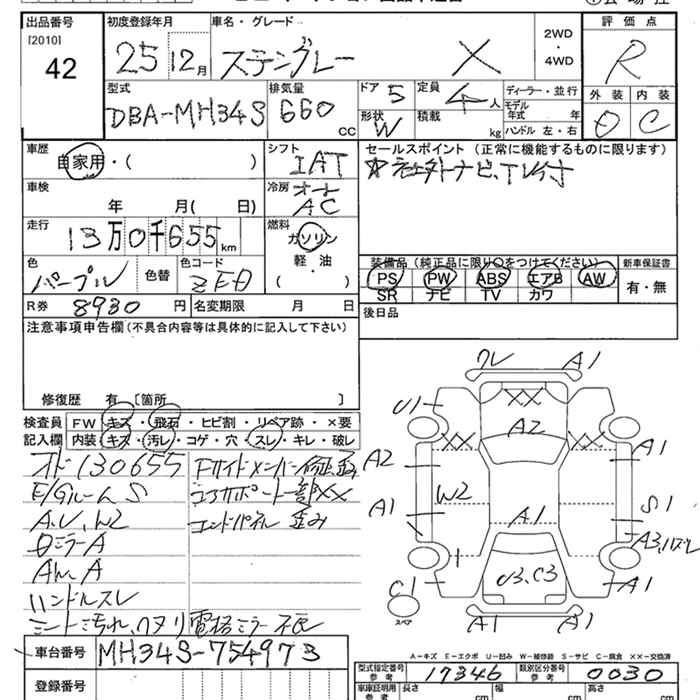 出品番号 初度登録年月 車名・グレード 2WD・4WD 評価点
[2010]
42 25 12月 スティングレー X R
型式 排気量 ドア 5 定員 4人 ディーラー・並行 外装 内装
DBA-MH34S 660CC 形状 W 積載 kg モデル年式 年 D C
ハンドル 左・右
車歴 シフト セールスポイント(正常に機能するものに限ります)
自家用・( ) IAT ☆社外ナビ、TV付
車検 冷房
年 月( 日) オート AC
走行 燃料
13万0千655km ガソリン
軽・油
( )
色 色替 色コード 装備品(純正品に限り○をつけてください) 新車保証書
パープル ZE0 PS PW ABS エアB AW 有・無
SR ナビ TV カワ
R券 8930円 名変期限 月 日 後日品
注意事項申告欄(不具合内容等は具体的に記入して下さい)
修復歴 有 [箇所 ]
検査員 FW キズ・飛石・ヒビ割・リペア跡・×要
記入欄 内装 キズ・汚レ・コゲ・穴・スレ・キレ・破レ
オド130655 Fサイドメンバー修正、歪
E/Gルーム S コアサポート一部××
A.U、W2 エンドパネル 歪み
ミラーA
A
ハンドルスレ
シート汚れ、ワヌリ 電格ミラー不良
車台番号 MH34S-754973
登録番号
ワレ A1
U1 A2
A2 A1
A1 W2 S1
A1 A3,
C1 U3、C3 A1
スペア A1 A1
A-キズ E-エクボ U-凹み W-補修跡 S-サビ C-腐食 ××-交換済
型式指定番号 参考 17346 類別区分番号 参考 0030
車庫証明用 参考 長さ cm 幅 cm 高さ cm